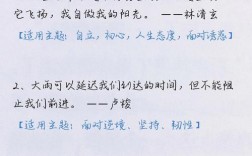 它飞扬，我自做我的阳光。——林清玄
【适用主题：自立，初心，人生态度，面对诱惑】
2、大雨可以延迟我们到达的时间，但不能阻
止我们前进。——卢梭
【适用主题：面对逆境、坚持、韧性】